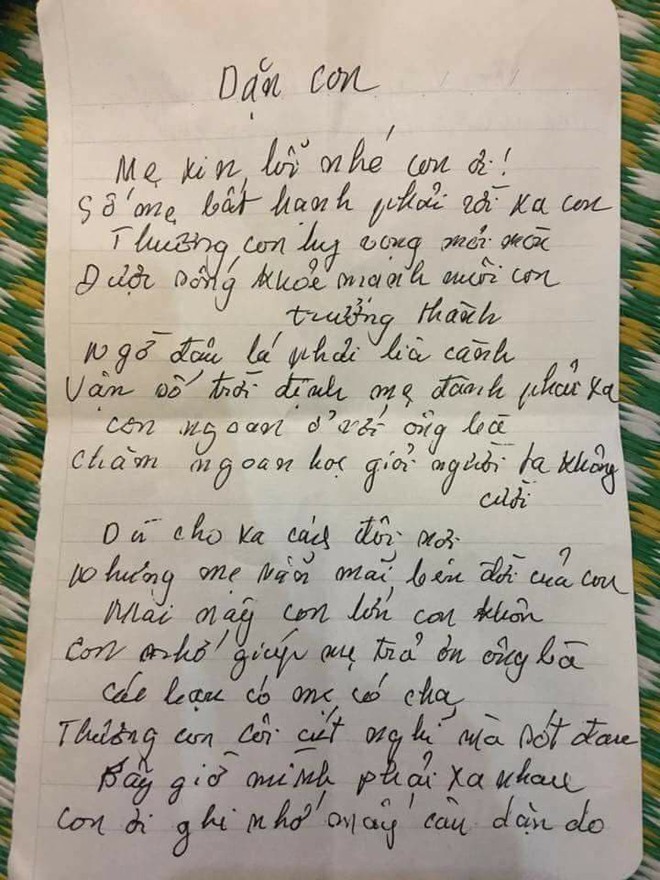 Dặn con
Mẹ xin lỗi nhé con ơi!
Số mẹ bất hạnh phải rời xa con
Thương con hy vọng mỏi mòn
Được sống khỏe mạnh nuôi con
trưởng thành
Ngờ đâu lá phải lìa cành
Vận số trời định mẹ đành phải xa
Con ngoan ở với ông bà
Chăm ngoan học giỏi người ta không
cười
Dù cho xa cách đôi nơi
Nhưng mẹ vẫn mãi bên đời của con
Mai này con lớn con khôn
Con nhớ giúp mẹ trả ơn ông bà
Các bạn có mẹ có cha
Thương con côi cút nghĩ mà xót đau
Bây giờ mình phải xa nhau
Con ơi ghi nhớ mấy câu dặn do